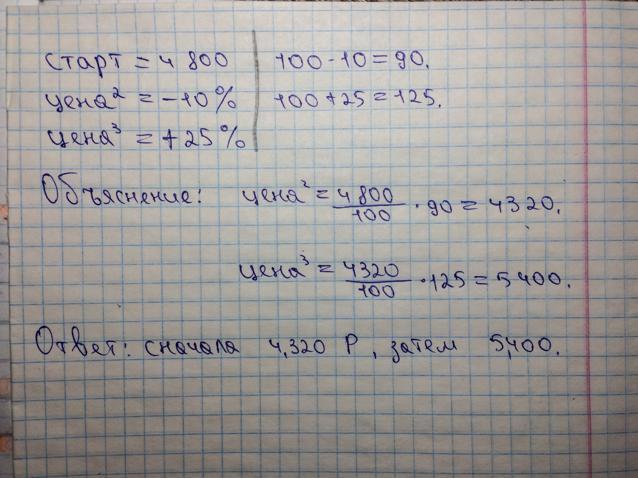 старт = 4 800 100 - 10 = 90.
цена² = -10% 100 + 25 = 125.
цена³ = +25%
Объяснение: цена² = 4 800/100 · 90 = 4320.
цена³ = 4320/100 · 125 = 5400.
Ответ: сначала 4,320 Р, затем 5,400.